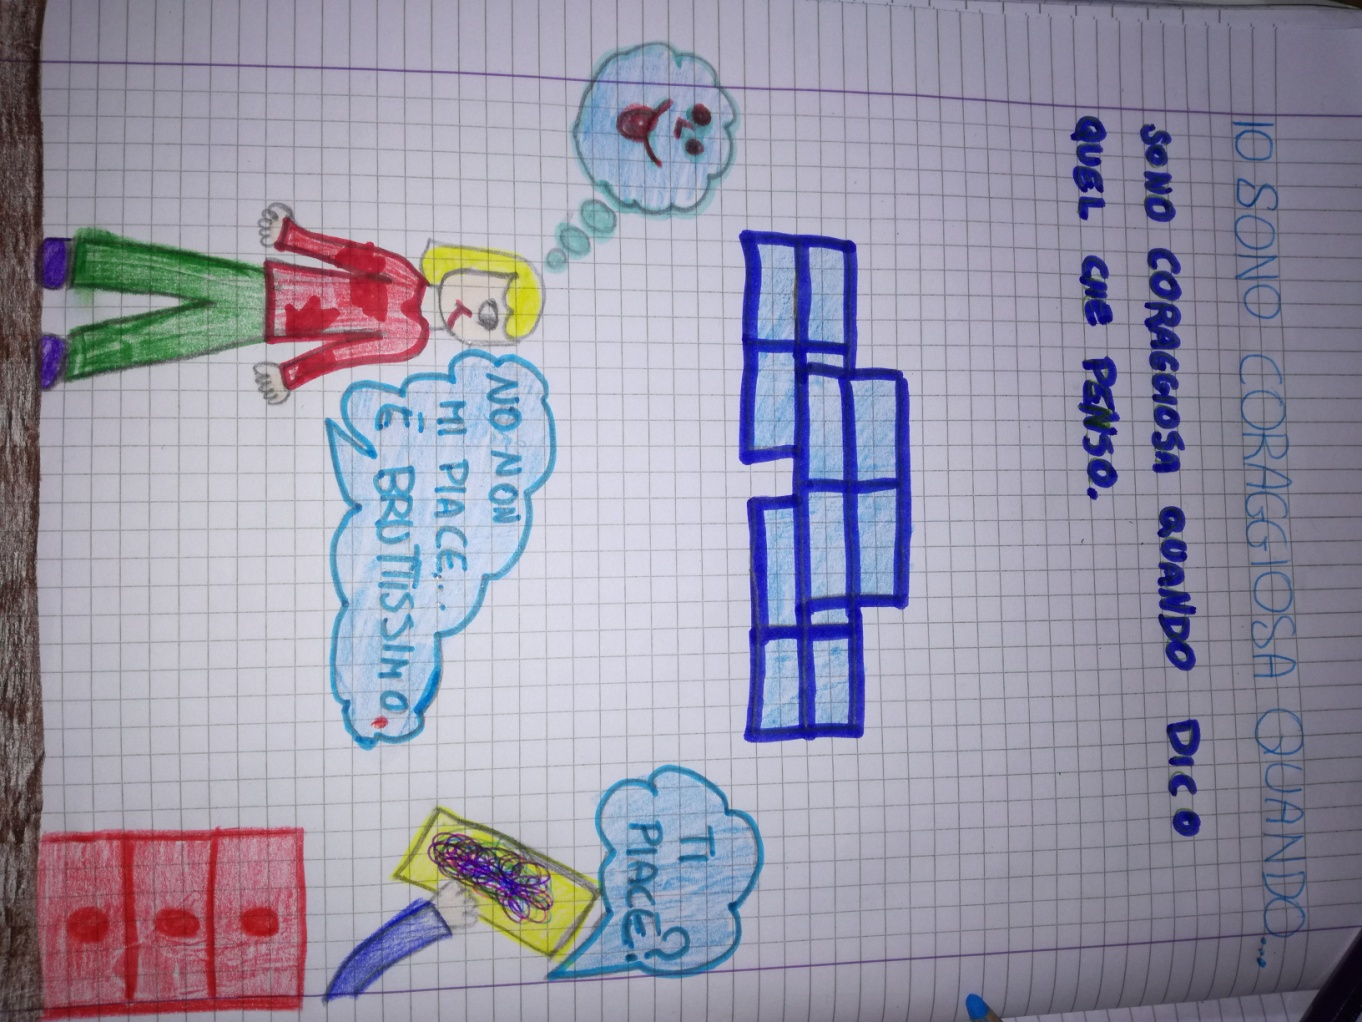 IO SONO CORAGGIOSA QUANDO...
SONO CORAGGIOSA QUANDO DICO
QUEL CHE PENSO.
NO NON
MI PIACE...
È BRUTTISSIMO.
TI
PIACE?